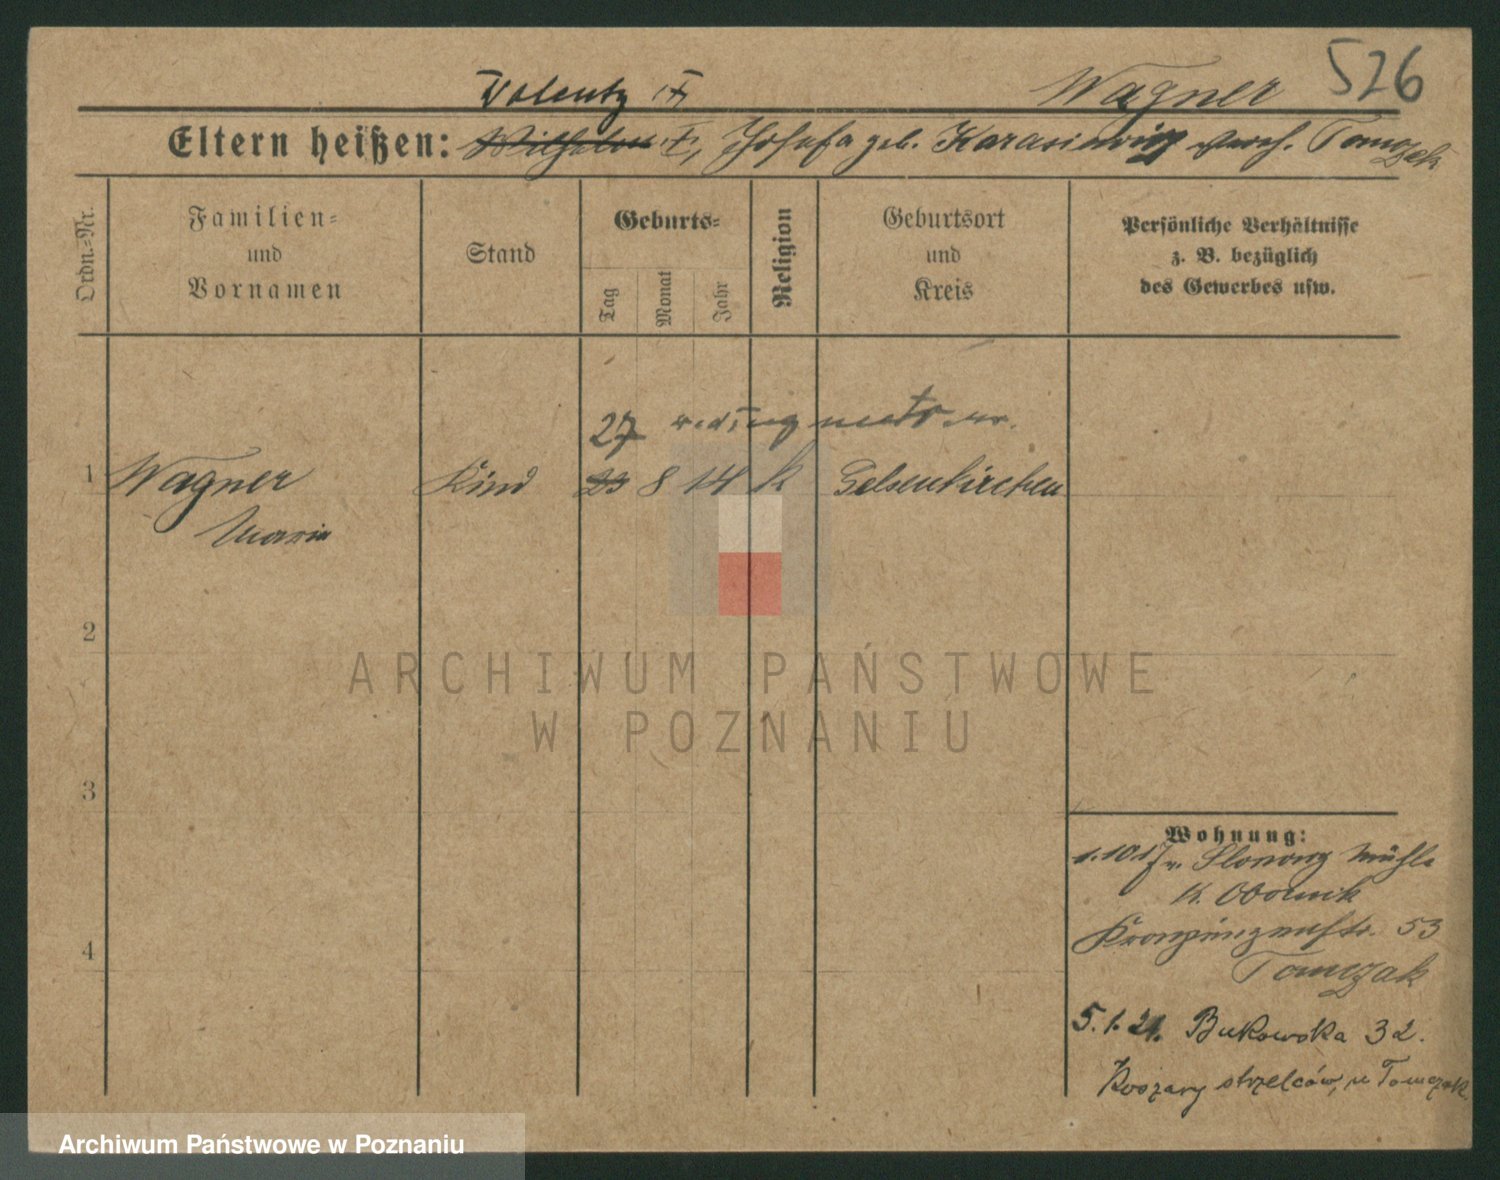 Walenty (†) Wagner 526
Eltern heißen: Wilhelm †, Josefa geb. Karasiewicz verh. Tomczak
Ordn.-Nr.
Familien-
und
Vornamen
Stand
Geburts-
Tag
Monat
Jahr
Religion
Geburtsort
und
Kreis
Persönliche Verhältnisse
z. B. bezüglich
des Gewerbes usw.
27 według metr.
1 Wagner Kind 23 8 14 k Gelsenkirchen
Maria
2
3
4
Wohnung:
1.10.17 v. Mühle
K. Obornik
Kronprinzenstr. 53
Tomczak
5.1.21. Bukowska 32.
Koszary strzelców, u Tomczak
ARCHIWUM PAŃSTWOWE
W POZNANIU
Archiwum Państwowe w Poznaniu